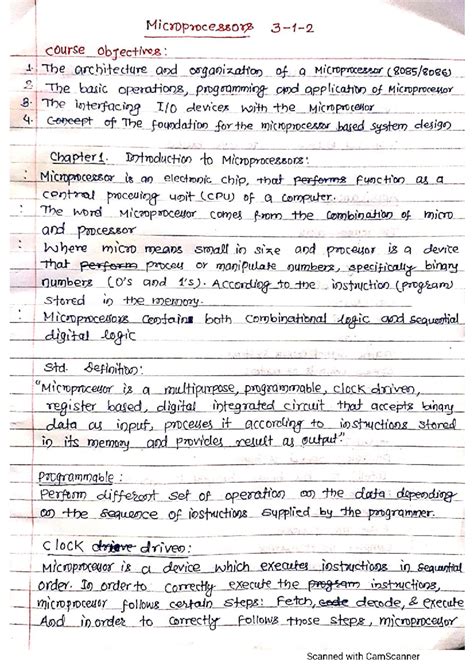 Microprocessors 3-1-2
Course Objectives:
1. The architecture and organization of a Microprocessor (8085/8086)
2. The basic operations, programming and application of Microprocessor
3. The interfacing I/O devices with the Microprocessor
4. Concept of The foundation for the microprocessor based system design
Chapter 1. Introduction to Microprocessors:
: Microprocessor is an electronic chip, that performs function as a
central processing unit (CPU) of a computer.
: The word Microprocessor comes from the combination of micro
and processor
: Where micro means small in size and processor is a device
that perform process or manipulate numbers, specifically binary
numbers (0's and 1's). According to the instruction (program)
stored in the memory.
: Microprocessors contains both combinational logic and sequential
digital logic
Std. Definition:
"Microprocessor is a multipurpose, programmable, clock driven,
register based, digital integrated circuit that accepts binary
data as input, processes it according to instructions stored
in its memory and provides result as output."
Programmable:
Perform different set of operation on the data depending
on the sequence of instructions supplied by the programmer.
Clock drive driven:
Microprocessor is a device which executes instructions in sequential
order. In order to correctly execute the program instructions,
microprocessor follows certain steps: Fetch, code decode, & execute
And in order to correctly follows those steps, microprocessor
Scanned with CamScanner